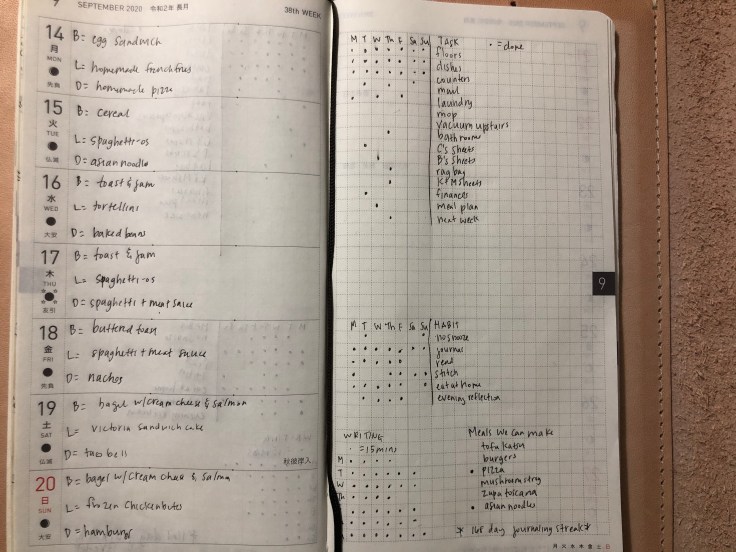 SEPTEMBER 2020 令和2年 長月 38th WEEK
14 B= egg sandwich
月
MON L= homemade french fries
先負 D= homemade pizza
15 B= cereal
火
TUE L= spaghetti-os
仏滅 D= asian noodle
16 B= toast & jam
水
WED L= tortellini
大安 D= baked beans
17 B= toast & jam
木
THU L= spaghetti-os
赤口 D= spaghetti + meat sauce
18 B= buttered toast
金
FRI L= spaghetti + meat sauce
先負 D= nachos
19 B= bagel w/cream cheese & salmon
土
SAT L= victoria sandwich cake
仏滅 D= taco bell
秋彼岸入
20 B= bagel w/cream cheese & salmon
日
SUN L= frozen chickenbites
大安 D= hamburg
M T W Th F Sa Su TASK • = done
floors
dishes
counters
mail
laundry
mop
vacuum upstairs
bathrooms
C's sheets
B's sheets
rag bag
K+M sheets
finances
meal plan
next week
9
M T W Th F Sa Su HABIT
no snooze
journal
read
stitch
eat at home
evening reflection
WRITING
· = 15 mins
M
T
W
Th
Meals we can make
tofu katsu
burgers
• pizza
mushroom strog
zupa toscana
• asian noodles
* 165 day journaling streak *
月 火 水 木 金 土 日